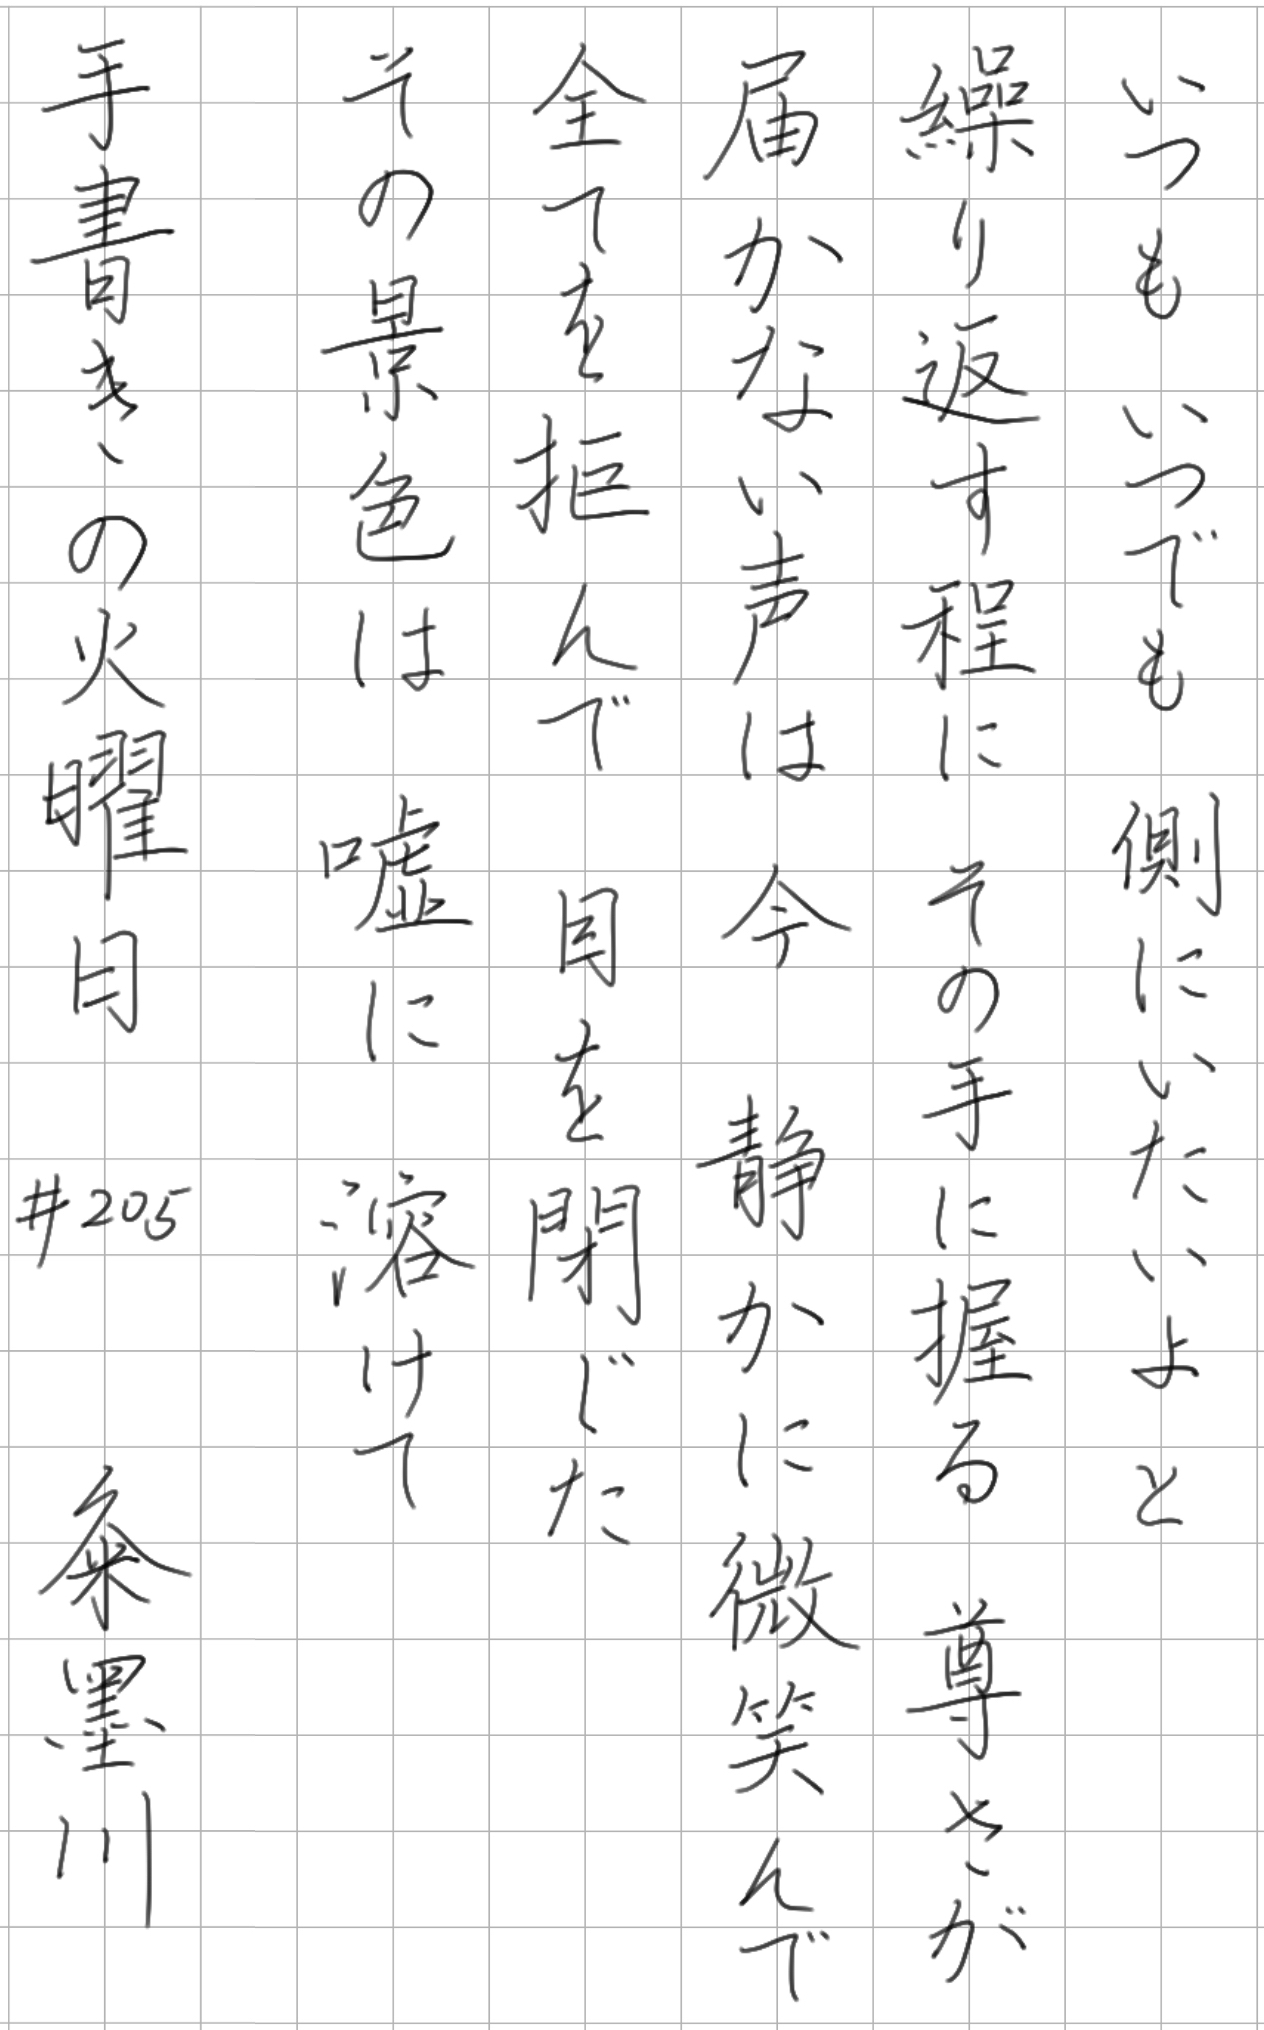 いつも いつでも 側にいたいよと
繰り返す程に その手に握る 尊さが
届かない声は 今 静かに微笑んで
全てを拒んで 目を閉じた
その景色は 嘘に 溶けて
手書きの火曜日 #205 粂墨川